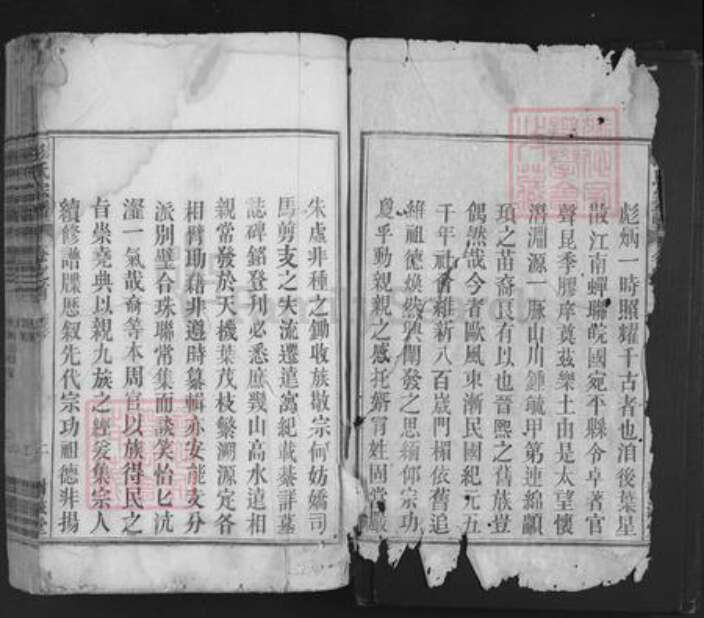 彪炳一時照耀千古者也洎後葉星
散江南蟬聯皖國宛平縣令卓著官
聲昆季膠庠奠茲樂土由是太望懷
淵源一脈山川鍾毓甲第連綿顓
頊之苗裔良有以也晉熙之舊族豈
偶然哉今者歐風東漸民國紀元五
千年社會維新八百歲門楣依舊追
維祖德煥然興闡發之思緬仰宗功
戛乎動親親之感托 姓
朱虛非種之鋤收族散宗何妨嬌司
馬剪支之失流遷遠寓紀載綦詳墓
誌碑銘登刊必悉庶幾山高水遠相
親常發於天機葉茂枝繁溯源定各
相臂助藉非遵時纂輯亦安能支分
派別璧合珠聯常集而談笑怡
一氣哉裔等本周官以族得民之
旨崇堯典以親九族之經爰集宗人
續修譜牒歷叙先代宗功祖德非揚